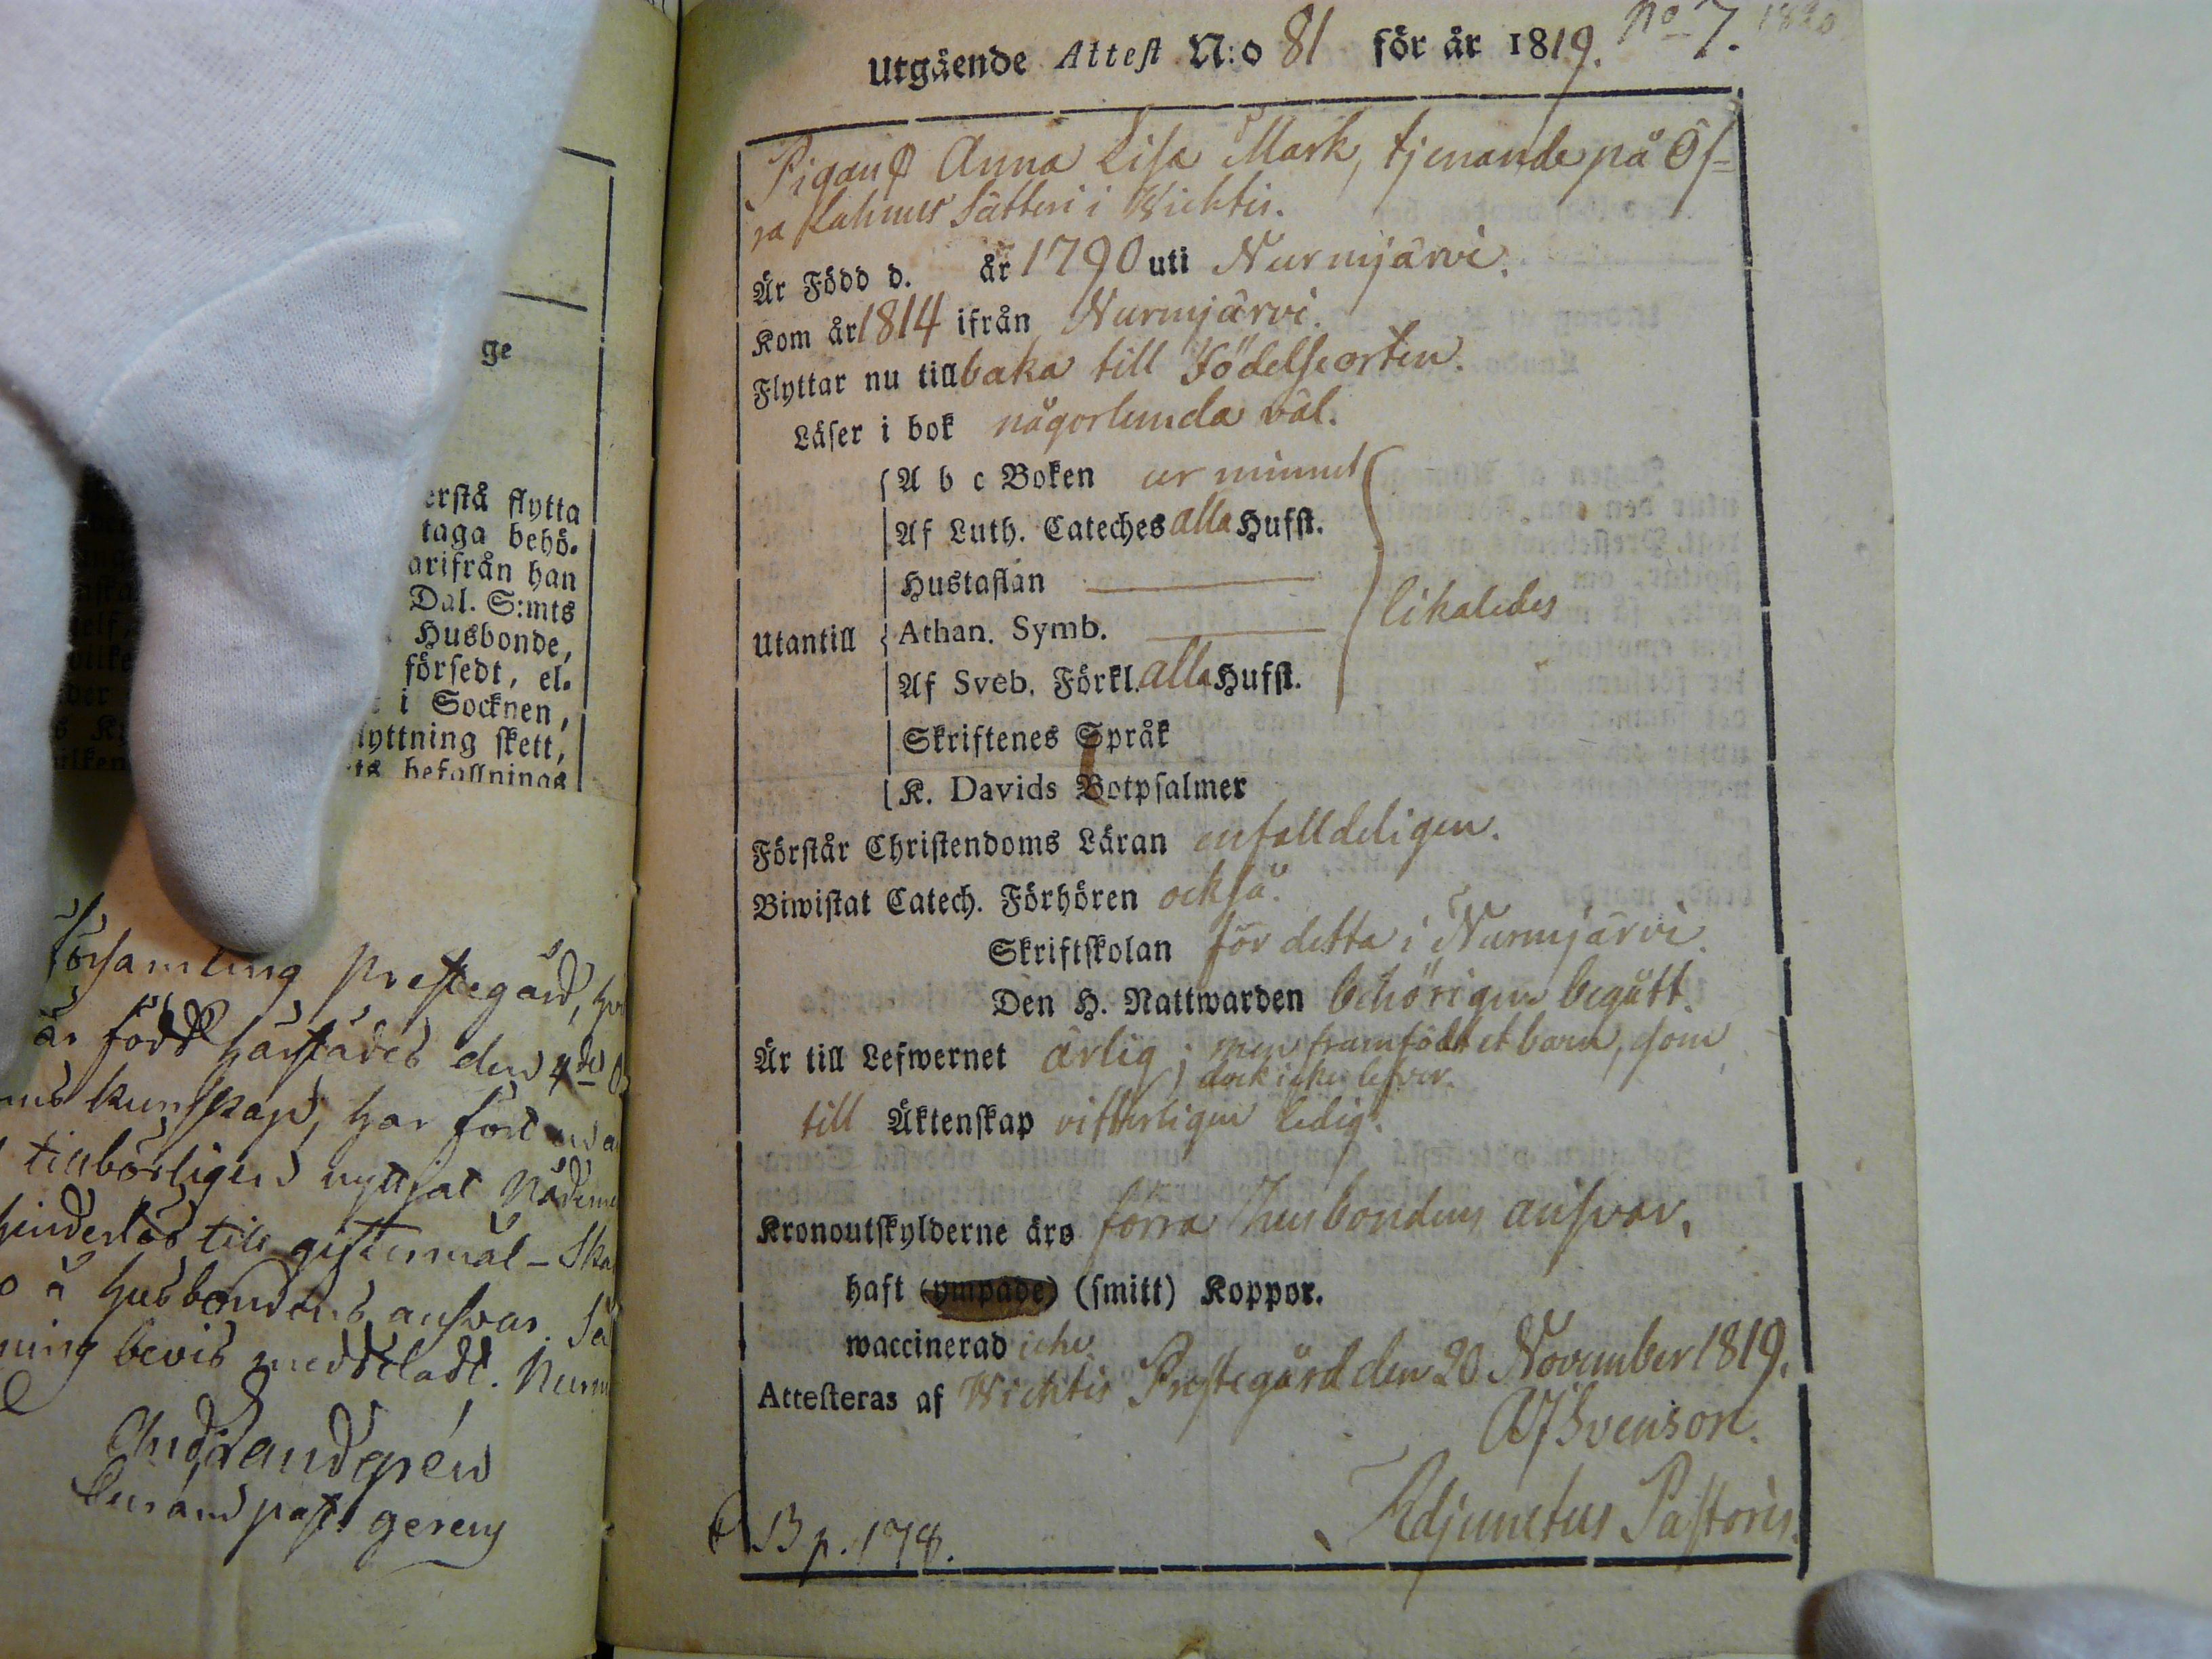 ge
erstå flytta
taga behö-
arifrån han
Dal. S:mts
Husbonde,
försedt, el-
i Socknen,
lyttning skett,
befallnings
församling prestegård,
är född härstädes den
kunskap, har fört
tillbörligen nyttjat Nådeme
hinderlös till giftermål - Ska
å husbondens ansvar.
ning bevis meddeladt. Nurm
past: gerens
Utgående Attest N:o 81 för år 1819. No 7. 1820
Pigan Anna Lisa Mark, tjenande på Öf-
ra Sätteri i Wichtis.
Är Född d. år 1790 uti Nurmjärvi.
Kom år 1814 ifrån Nurmjärvi.
Flyttar nu tillbaka till Födelseorten.
Läser i bok någorlunda väl.
Utantill
A b c Boken ur minnet
Af Luth. Cateches alla Hufst.
Hustaflan
Athan. Symb.
likaledes
Af Sveb. Förkl. alla Hufst.
Skriftenes Språk
K. Davids Botpsalmer
Förstår Christendoms Läran enfalldeligen.
Biwistat Catech. Förhören också.
Skriftskolan för detta i Nurmjärvi.
Den H. Nattwarden behörigen begått.
Är till Lefwernet ärlig; men framfödt et barn, som
dock icke lefver.
till Äktenskap vitterligen ledig.
Kronoutskylderne äro förra husbondens ansvar.
haft (ympade) (smitt) Koppor.
waccinerad icke.
Attesteras af Wichtis Prestegård den 20 November 1819.
Svenson.
Adjunctus Pastoris.
B p. 178.